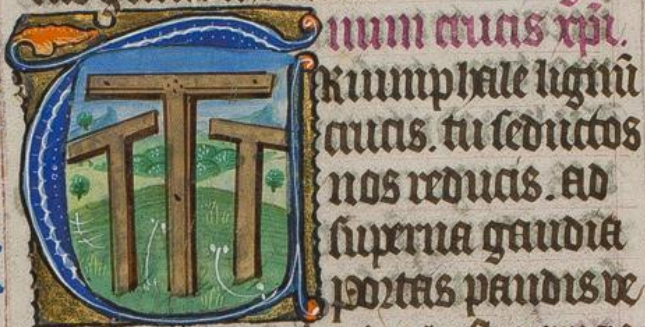 num crucis xp̄i.
Riumphale lignū
crucis. tu seductos
nos reducis. ad
superna gaudia
portas pandis ve